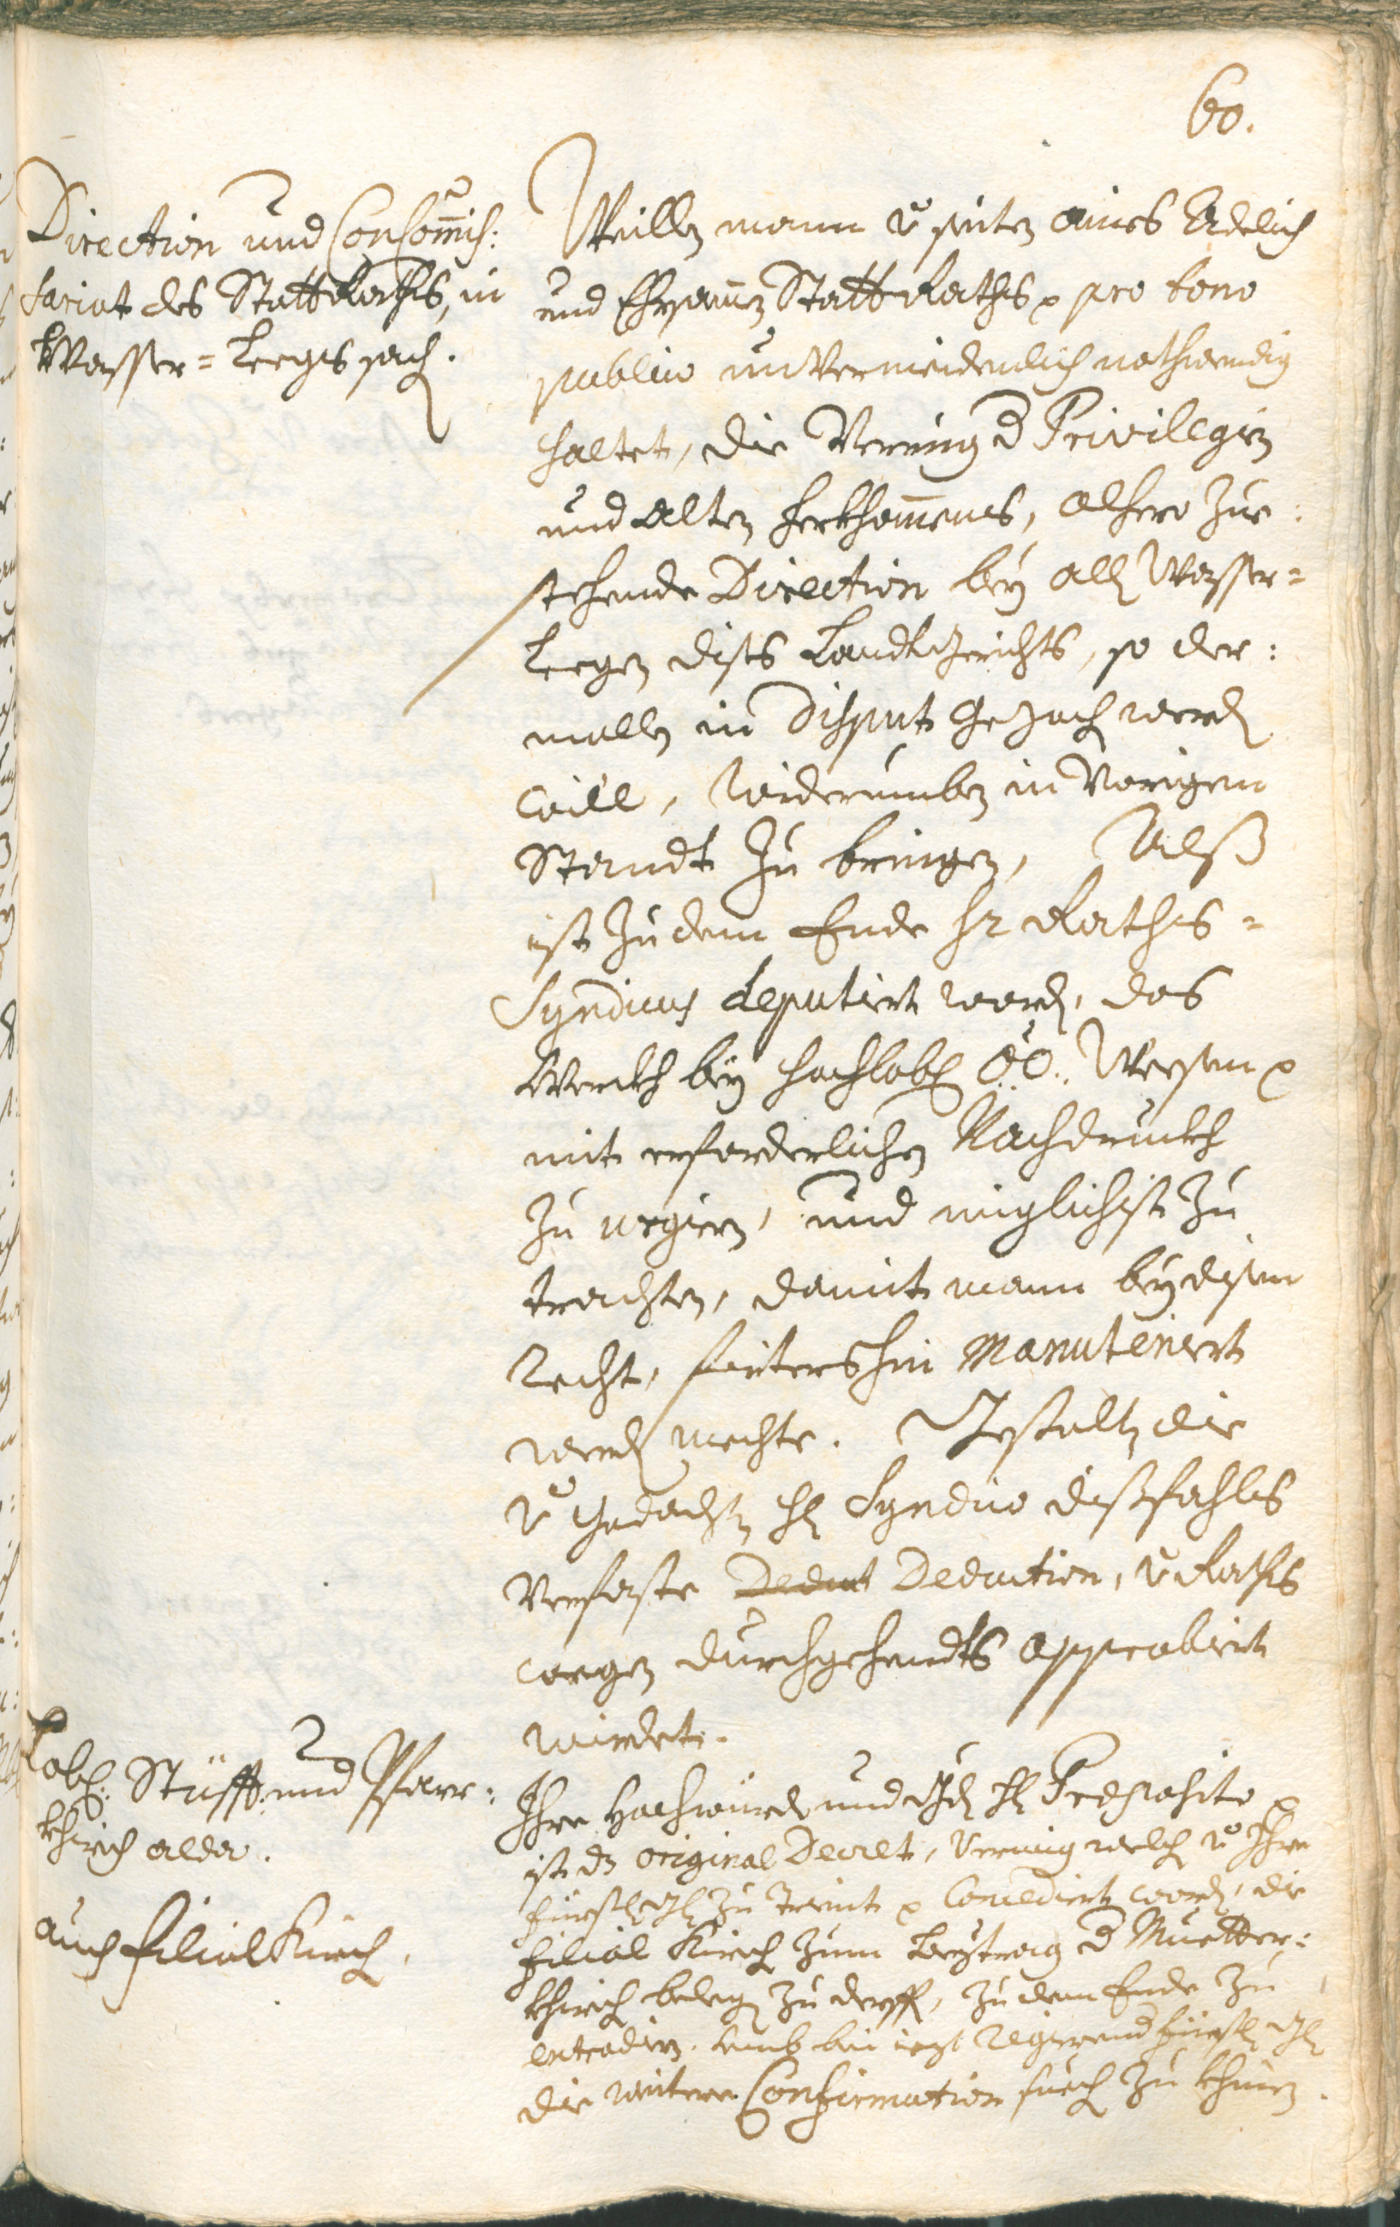 60.
Direction und Consommis:
sariat des StattRaths, in
Wasser=Leegssach.
Weillen mann v seiten aines Edelich
und Ehrsamen StattRaths pro bono
publico unvermeidenlich nothwendig
haltet, die Vermig d Privilegien
und alten herkhommens, alhero zue:
stehende Direction bey all Wasser=
Leegen dists LandtGerichts, so der:
mallen in Disput gezoch werd
will, widerumben in Vorigem
Standt zu bringen, Alß
ist zu dem Ende hr Raths=
Syndicus deputirt word, das
Werckh bey hochlobl OÖ: Weesen
mit erforderlichen Nachdruckh
zu urgiern, und miglichist zu
trachten, damit mann bey disem
Recht, firtershin Manutenirt
werd mechte. Gestalten die
v gedachten H Syndico dißfahls
Verfaste Deduct Deduction, v Raths
wegen durchgehendts approbiert
wirdet.
Lobl: Stüfft und Pfarr:
khirch alda.
auch filial Kirch.
Ihro Hochwürd und Gd H Preposito
ist dz original Decret, Vermig welch v Ihro
fürstl Gd zu Trient Concediert word, die
filial Kirch zum Beytrag d Muetter:
khirch beleg zu derff, zu dem Ende zu
extradirn. umb bei iezt Regierend fürstl Gd
die weitere Confirmation suech zu khinen.